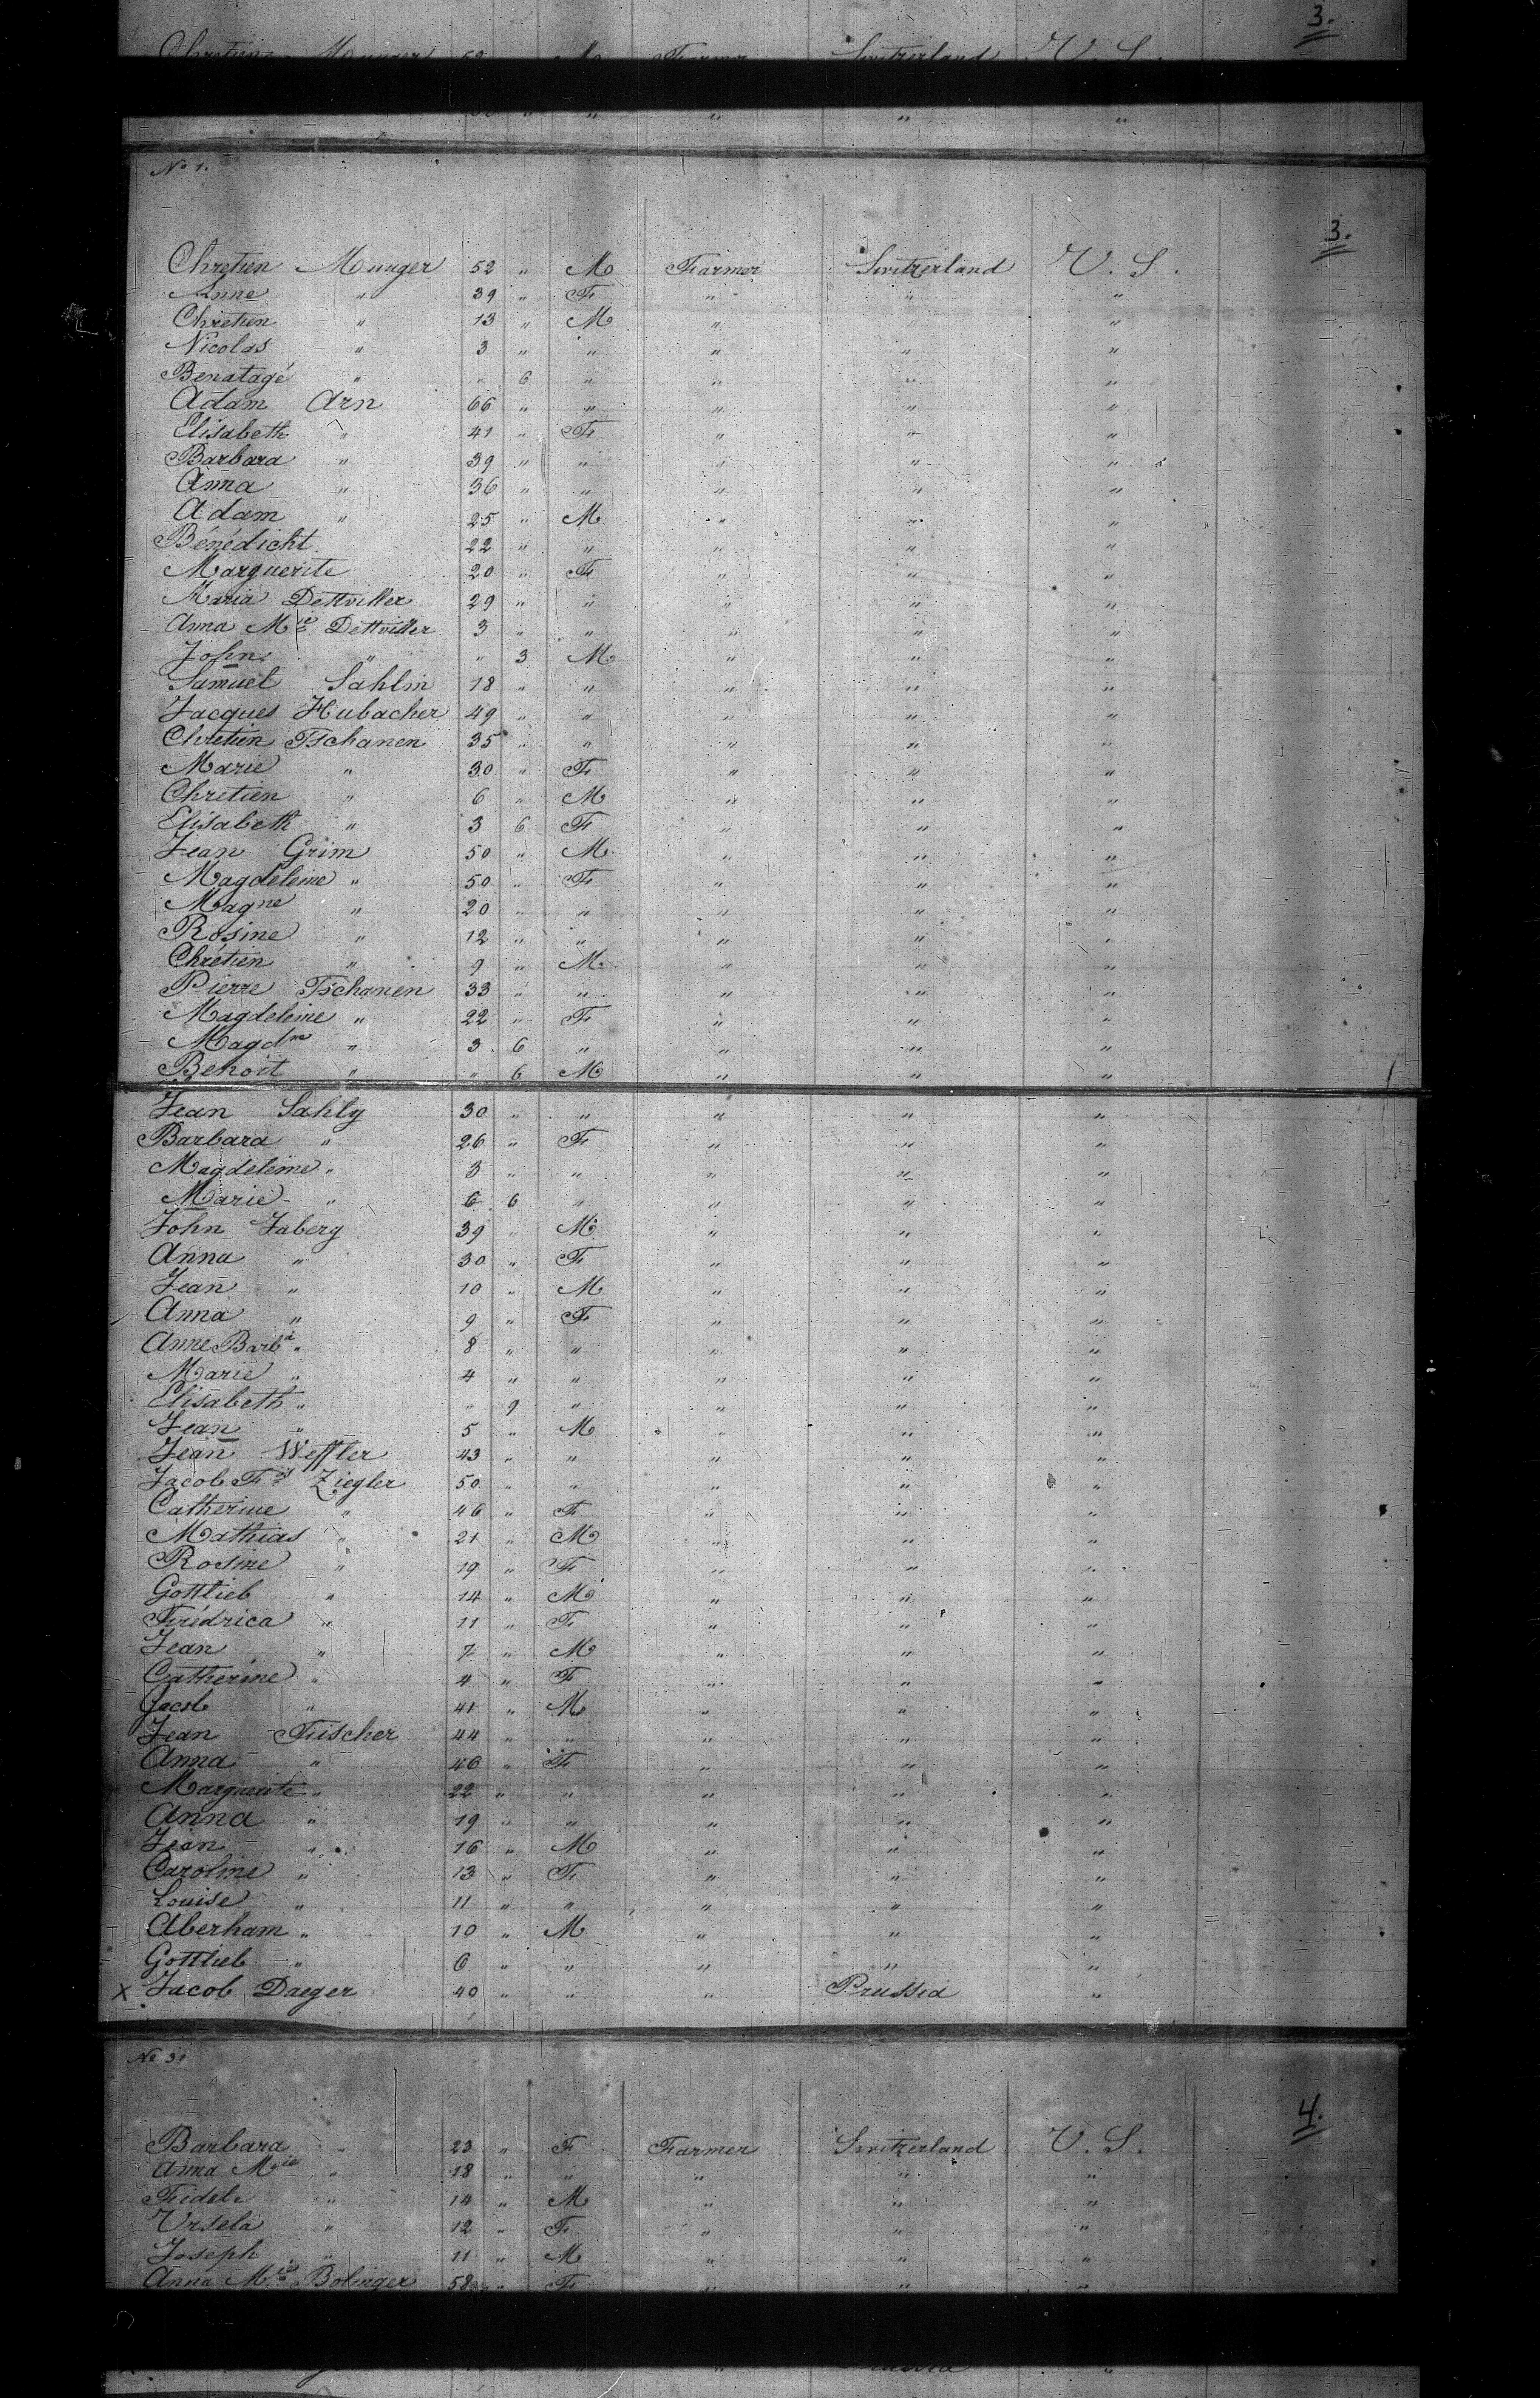 3.
Chretien Munger 52 M Farmer Switzerland U. S.
" " " " "
No 1.
3.
Chretien Munger 52 " M Farmer Switzerland U. S.
Anne " 39 " F " " "
Chretien " 13 " M " "
Nicolas " 3 " " " " "
Benatagé " " 6 " " " "
Adam Arn 66 " " " " "
Elisabeth " 41 " F " " "
Barbara " 39 " " " " "
Anna " 36 " " " " "
Adam " 25 " M " " "
Bénédicht 22 " " " " "
Marguerite 20 " F " " "
Maria Dettviller 29 " " " " "
Anna Mie Dettviller 3 " " " " "
John " " 3 M " " "
Samuel Sahlin 18 " " " " "
Jacques Hubacher 49 " " " " "
Chretien Tschanen 35 " " " " "
Marie " 30 " F " " "
Chretien " 6 " M " " "
Elisabeth " 3 6 F " " "
Jean Grim 50 " M " " "
Magdeleine " 50 " F " " "
Magne " 20 " " " " "
Rosine " 12 " " " " "
Chrétien " 9 " M " " "
Pierre Tschanen 33 " " " " "
Magdeleine " 22 " F " " "
Magdne " 3 6 " " " "
Benoit " " 6 M " " "
Jean Sahly 30 " " " " "
Barbara " 26 " F " " "
Magdeleine " 3 " " " " "
Marie " 6 6 " " " "
John Jaberg 39 " M " " "
Anna " 30 " F " " "
Jean " 10 " M " " "
Anna " 9 " F " " "
Anne Barba " 8 " " " " "
Marie " 4 " " " " "
Elisabeth " " 9 " " " "
Jean " 5 " M " " "
Jean Weffler 43 " " " " "
Jacob Fd Ziegler 50 " " " " "
Catherine " 46 " F " " "
Mathias " 21 " M " " "
Rosine " 19 " F " " "
Gottlieb " 14 " M " " "
Frédrica " 11 " F " " "
Jean " 7 " M " " "
Catherine " 4 " F " " "
Jacob " 41 " M " " "
Jean Fuscher 44 " " " " "
Anna " 46 " F " " "
Marguerite " 22 " " " " "
Anna " 19 " " " " "
Jean " 16 " M " " "
Caroline " 13 " F " " "
Louise " 11 " " " " "
Aberham " 10 " M " " "
Gottlieb " 6 " " " " "
x Jacob Daeger 40 " " " Prussia "
No 3.
4.
Barbara " 23 " F Farmer Switzerland U. S.
Anna Mie " 18 " " " " "
Fidele " 14 " M " " "
Ursela " 12 " F " " "
Joseph " 11 " M " " "
Anna Mie Bolinger 58 " F " " "